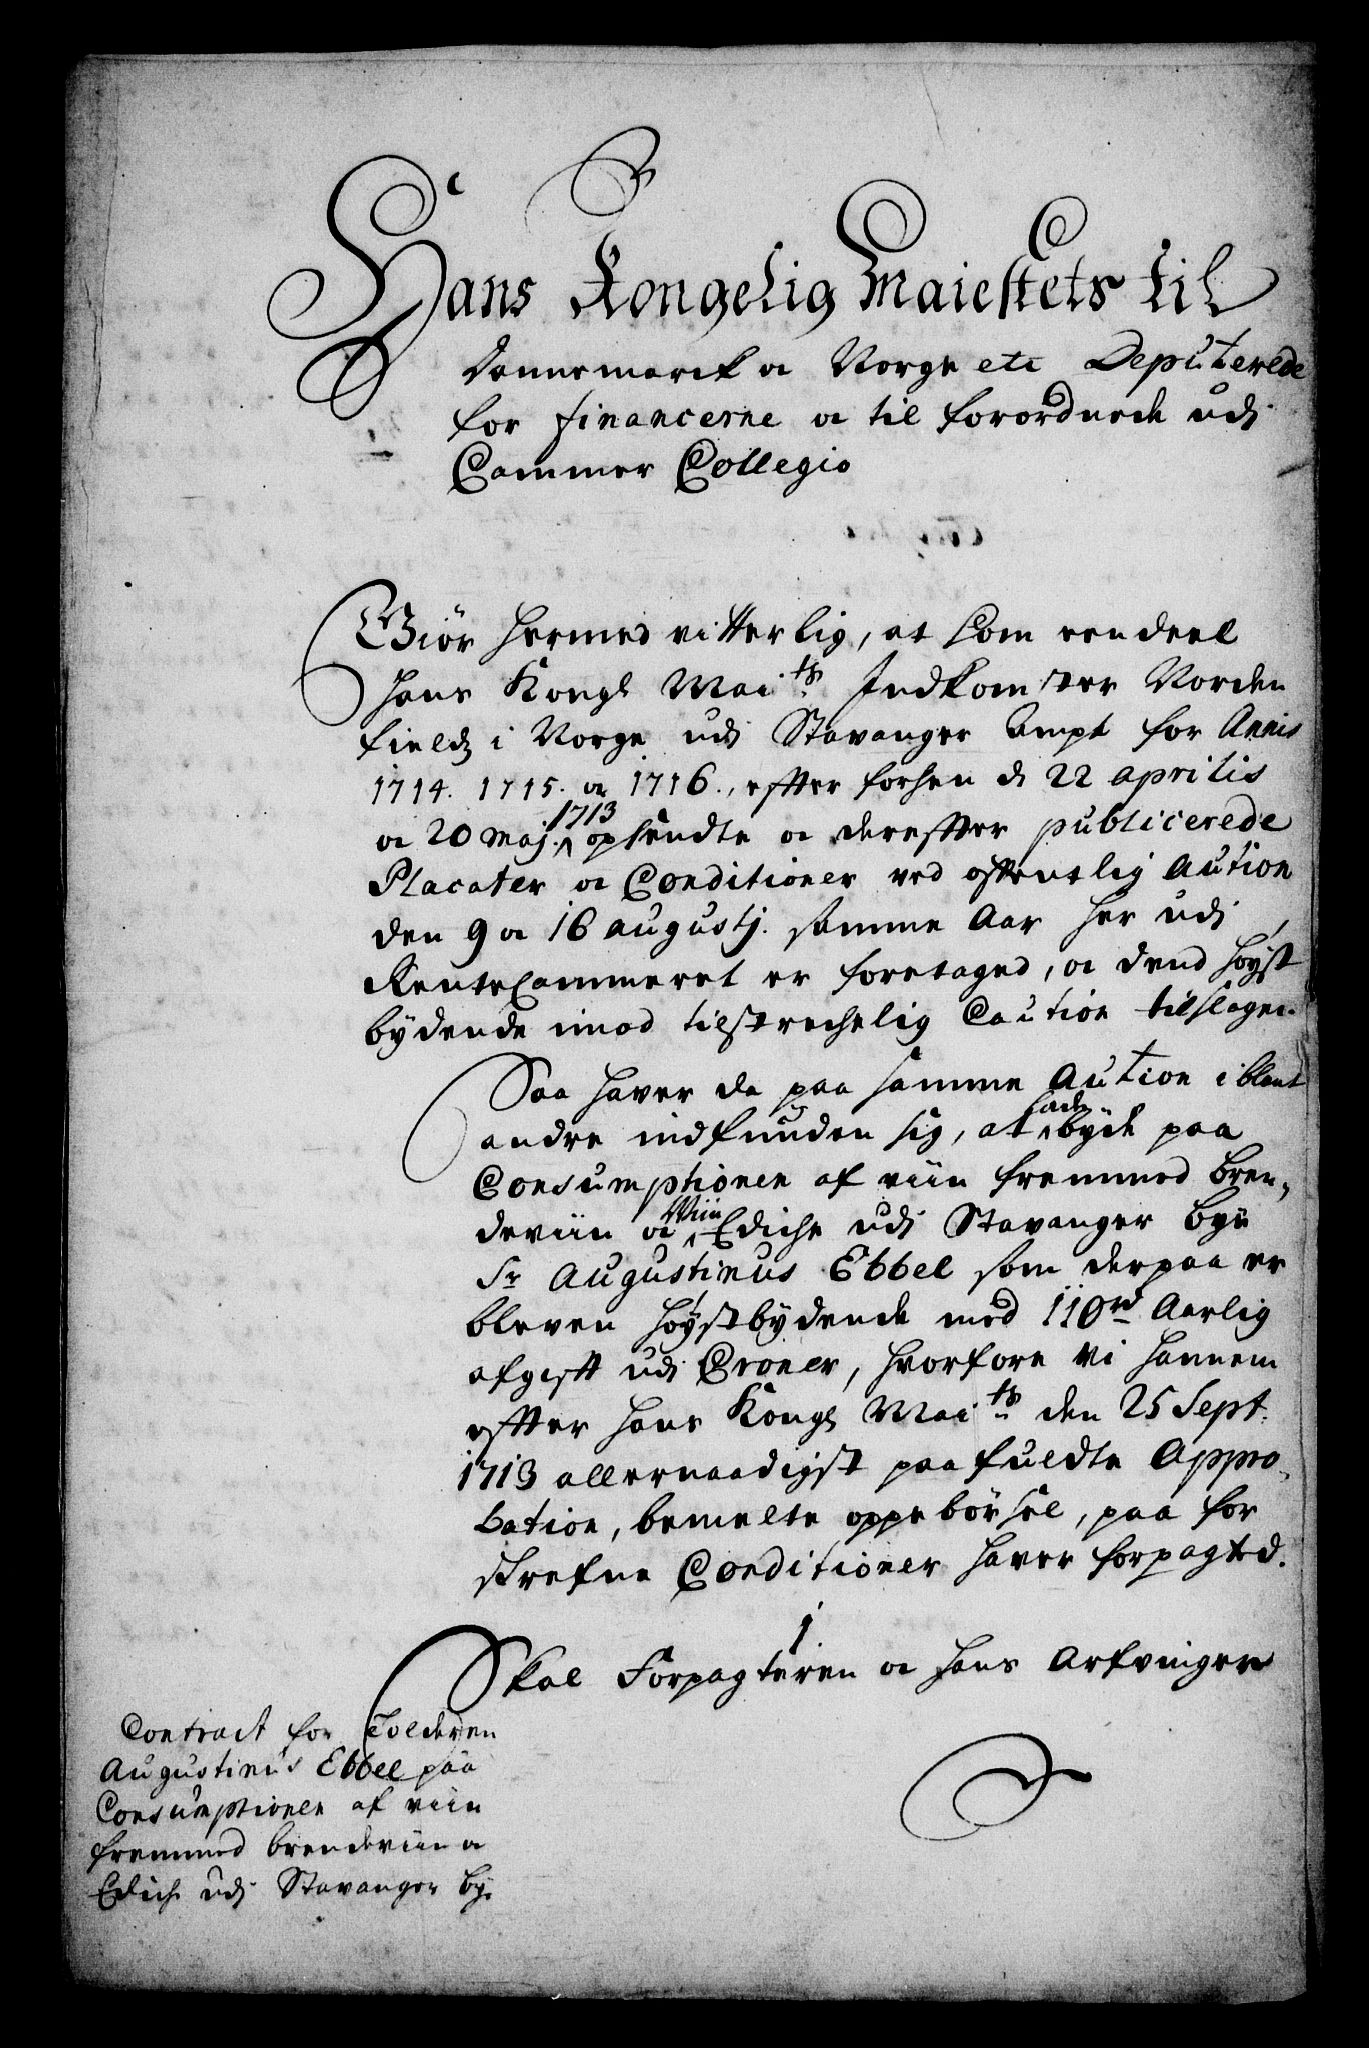 Hans Kongelig Maiestets til
Dannemarck oc Norge etc Deputerede
for financerne oc til forordnede udj
Cammer Collegio
Giör hermed vitterlig, at Som een deel
Hans Kongl Maits Indkomster Norden
fields i Norge udj Stavanger Ampt for Annis
1714. 1715. oc 1716., efter forhen d 22 aprilis
oc 20 Maj. 1713 opsendte oc derefter publicerede
Placater oc Conditioner ved offentlig Aution
den 9 oc 16 augustj. samme Aar her udj
RenteCammeret er foretaged, oc dend höyst
bydende imod tilstrechelig Caution tilslagen.
Saa haver da paa samme Aution iblant
andre indfunden sig, at lade byde paa
Consumptionen af viin fremmed bren,
deviin oc Viin Ediche udj Stavanger bye
Sr Augustinus Ebbel som derpaa er
bleven höystbydende med 110 rd Aarlig
afgift udj Croner, hvorfore Vi hannem
efter Hans Kongl Maits den 25 Sept.
1713 allernaadigst paafuldte Appro,
bation, bemelte oppebörsel, paa for
skrefne Conditioner haver forpagted.
1
Skal Forpagteren oc hans Arfvinger
Contract for Tolderen
Augustinus Ebbel paa
Consumptionen af viin
fremmed brendeviin oc
Edich udj Stavanger by.